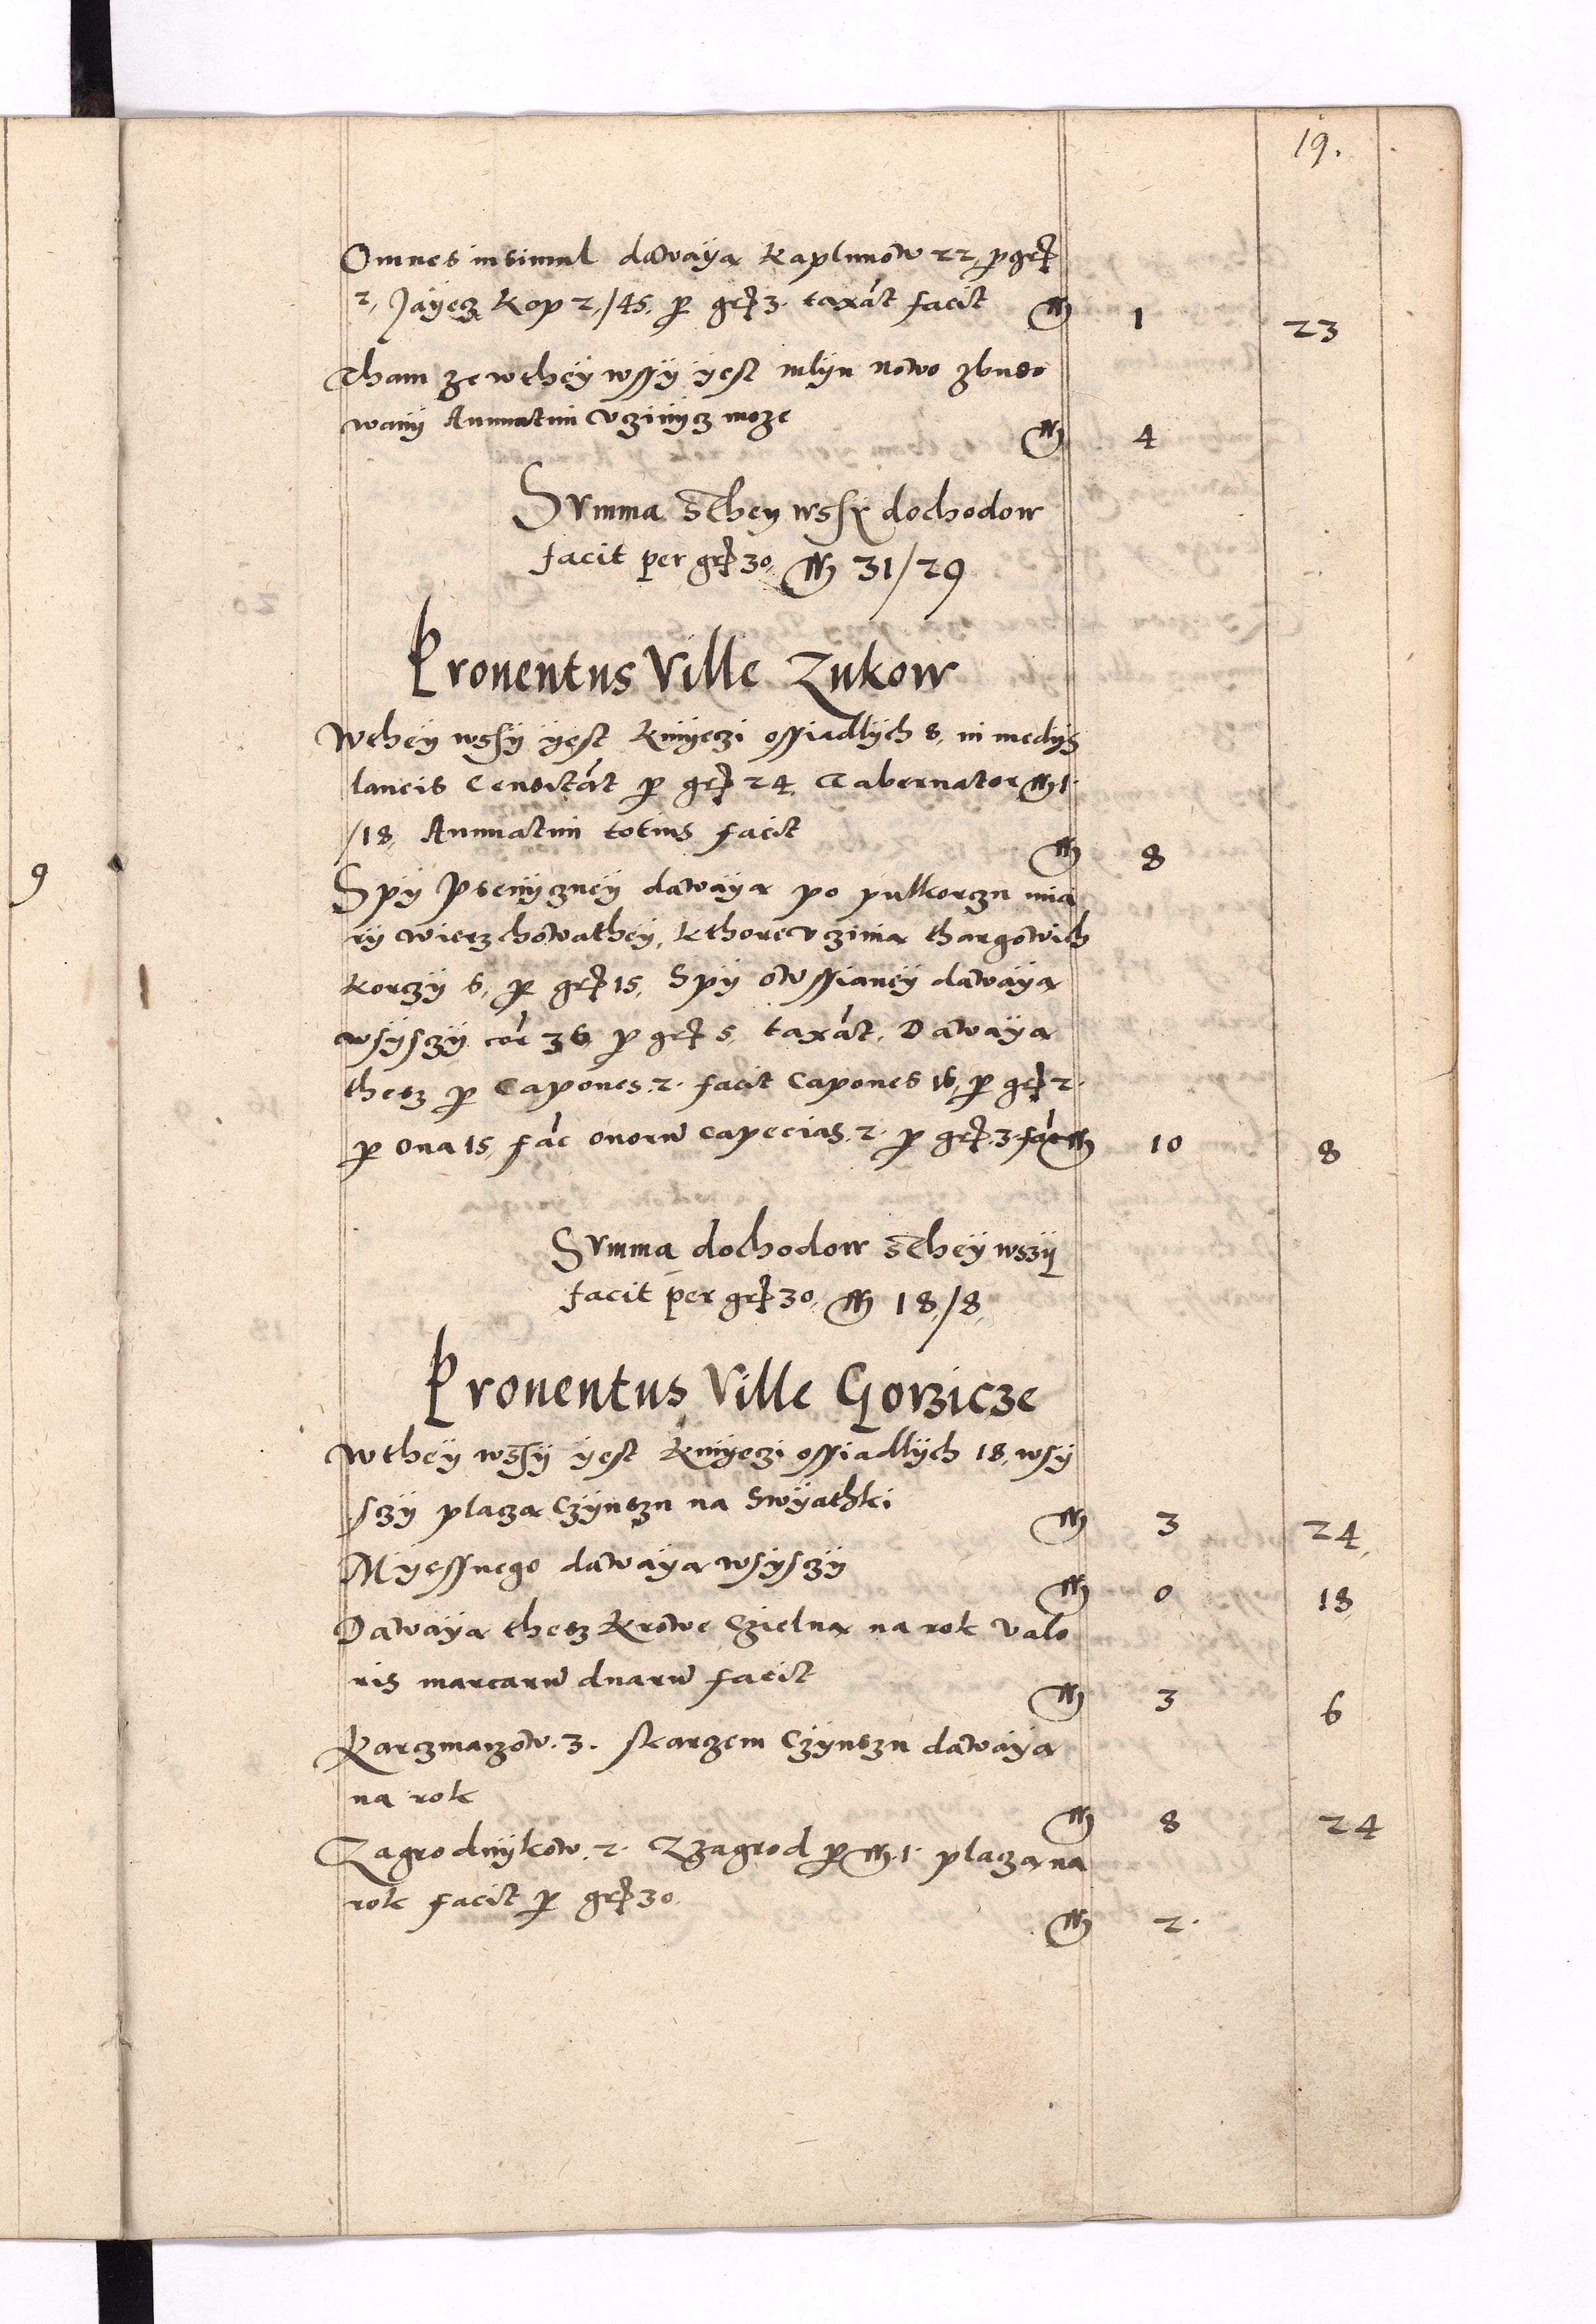 19.
Omnes insimul dawaya Kaplunow 22, p gr
2, Jayecz Kop 2,/45, p gr 3. taxat facit m 1 23
Tham ze wthey wssy yest mlyn nowo zbudo
wany Annuatim Vczinycz moze m 4
Summa sthey wsſy dochodow
facit per gr 30, m 31/29
Proventus Ville Zukow
Wthey wsſy yest Knyeczi ossiadlych 8, in medys
laneis Censitat p gr 24 Tabernator m 1.
/18, Annuatim totius facit m 8
Spy Psenyczney dawaya po pulkorczu mia
ry wierzchowathey, kthore vczinia thargowich
korczy 6, p gr 15, Spy owssianey dawaya
wsysczy cor 36 p gr 5, taxat, Dawaya
thesz p Capones 2. facit Capones 16, p gr 2.
p Oua 15, fac ouoru capecias 2. p gr 3 fac m 10 8
Summa dochodow sthey wszy
facit per gr 30, m 18,/8,
Proventus Ville Gorzicze
Wthey wsſy yest Knyeczi ossiadlych 18, wsy
sczy placza Czynszu na Swyathki m 3 24,
Myessnego dawaya wsysczy m 0 18
Dawaya thesz Krowe Czielna na rok valo
ris marcaru duaru facit m 3 6
Karczmarzow. 3. skarzem Czynszu dawaya
na rok m 8 24
Zagrodnykow 2. Zzagrod p m 1. placza na
rok facit p gr 30. m 2.
9